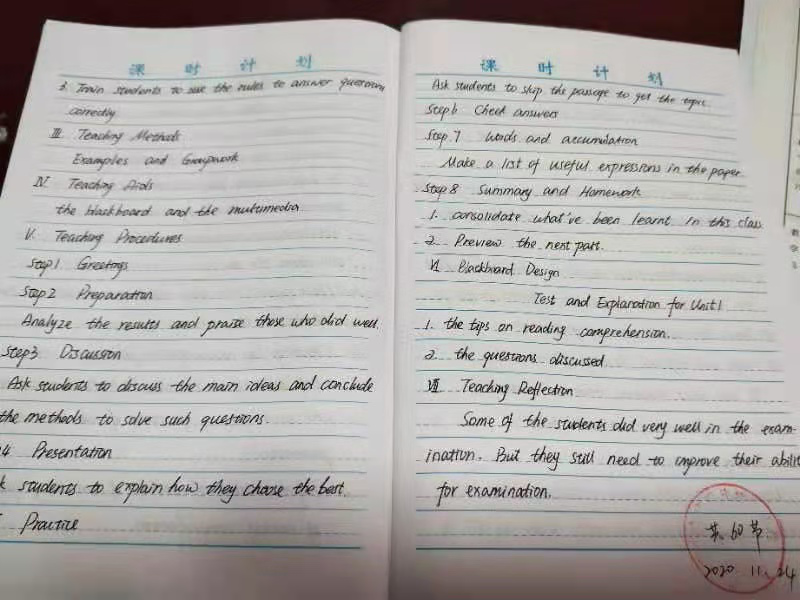 课 时 计 划
3. Train students to use the rules to answer questions
correctly
Ⅲ Teaching Methods
Examples and Groupwork
Ⅳ Teaching Aids
the blackboard and the multimedia
Ⅴ Teaching Procedures
Step1 Greetings
Step2 Preparation
Analyze the results and praise those who did well.
Step3 Discussion
Ask students to discuss the main ideas and conclude
the methods to solve such questions.
4 Presentation
k students to explain how they choose the best.
Practice
课 时 计 划
Ask students to skip the passage to get the topic.
Step6 Check answers
Step7 Words and accumulation
Make a list of useful expressions in the paper.
Step8 Summary and Homework
1. consolidate what've been learnt in this class.
2. Preview the next part.
Ⅵ Blackboard Design
Test and Explanation for Unit1
1. the tips on reading comprehension.
2. the questions discussed.
Ⅶ Teaching Reflection
Some of the students did very well in the exam-
ination. But they still need to improve their abilit
for examination.
共60节
2020.11.24